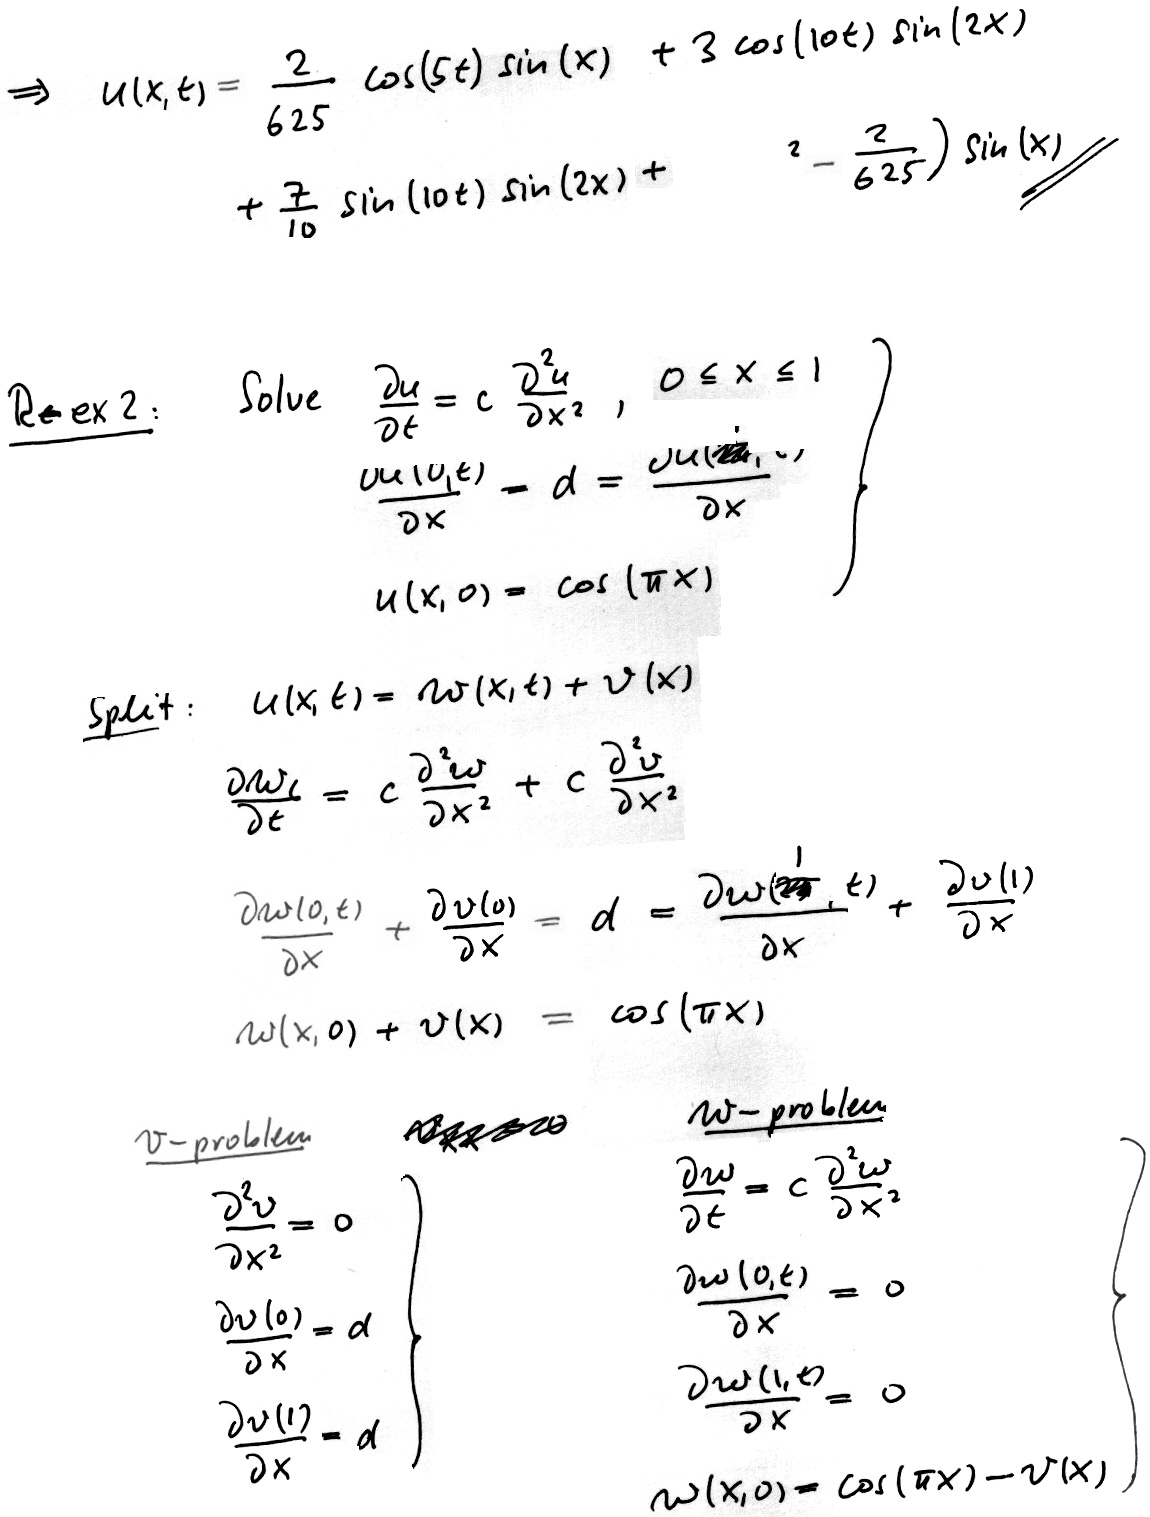 ⇒ u(x,t) = 2/625 cos(5t) sin(x) + 3 cos(10t) sin(2x)
+ 7/10 sin(10t) sin(2x) + ² - 2/625) sin(x)
Re ex 2: Solve ∂u/∂t = c ∂²u/∂x² , 0 ≤ x ≤ 1
∂u(0,t)/∂x - d = ∂u(1, )/∂x
u(x,0) = cos(πx)
Split: u(x,t) = w(x,t) + v(x)
∂w/∂t = c ∂²w/∂x² + c ∂²v/∂x²
∂w(0,t)/∂x + ∂v(0)/∂x = d = ∂w(1,t)/∂x + ∂v(1)/∂x
w(x,0) + v(x) = cos(πx)
v-problem w-problem
∂²v/∂x² = 0 ∂w/∂t = c ∂²w/∂x²
∂v(0)/∂x = d ∂w(0,t)/∂x = 0
∂v(1)/∂x = d ∂w(1,t)/∂x = 0
w(x,0) = cos(πx) - v(x)